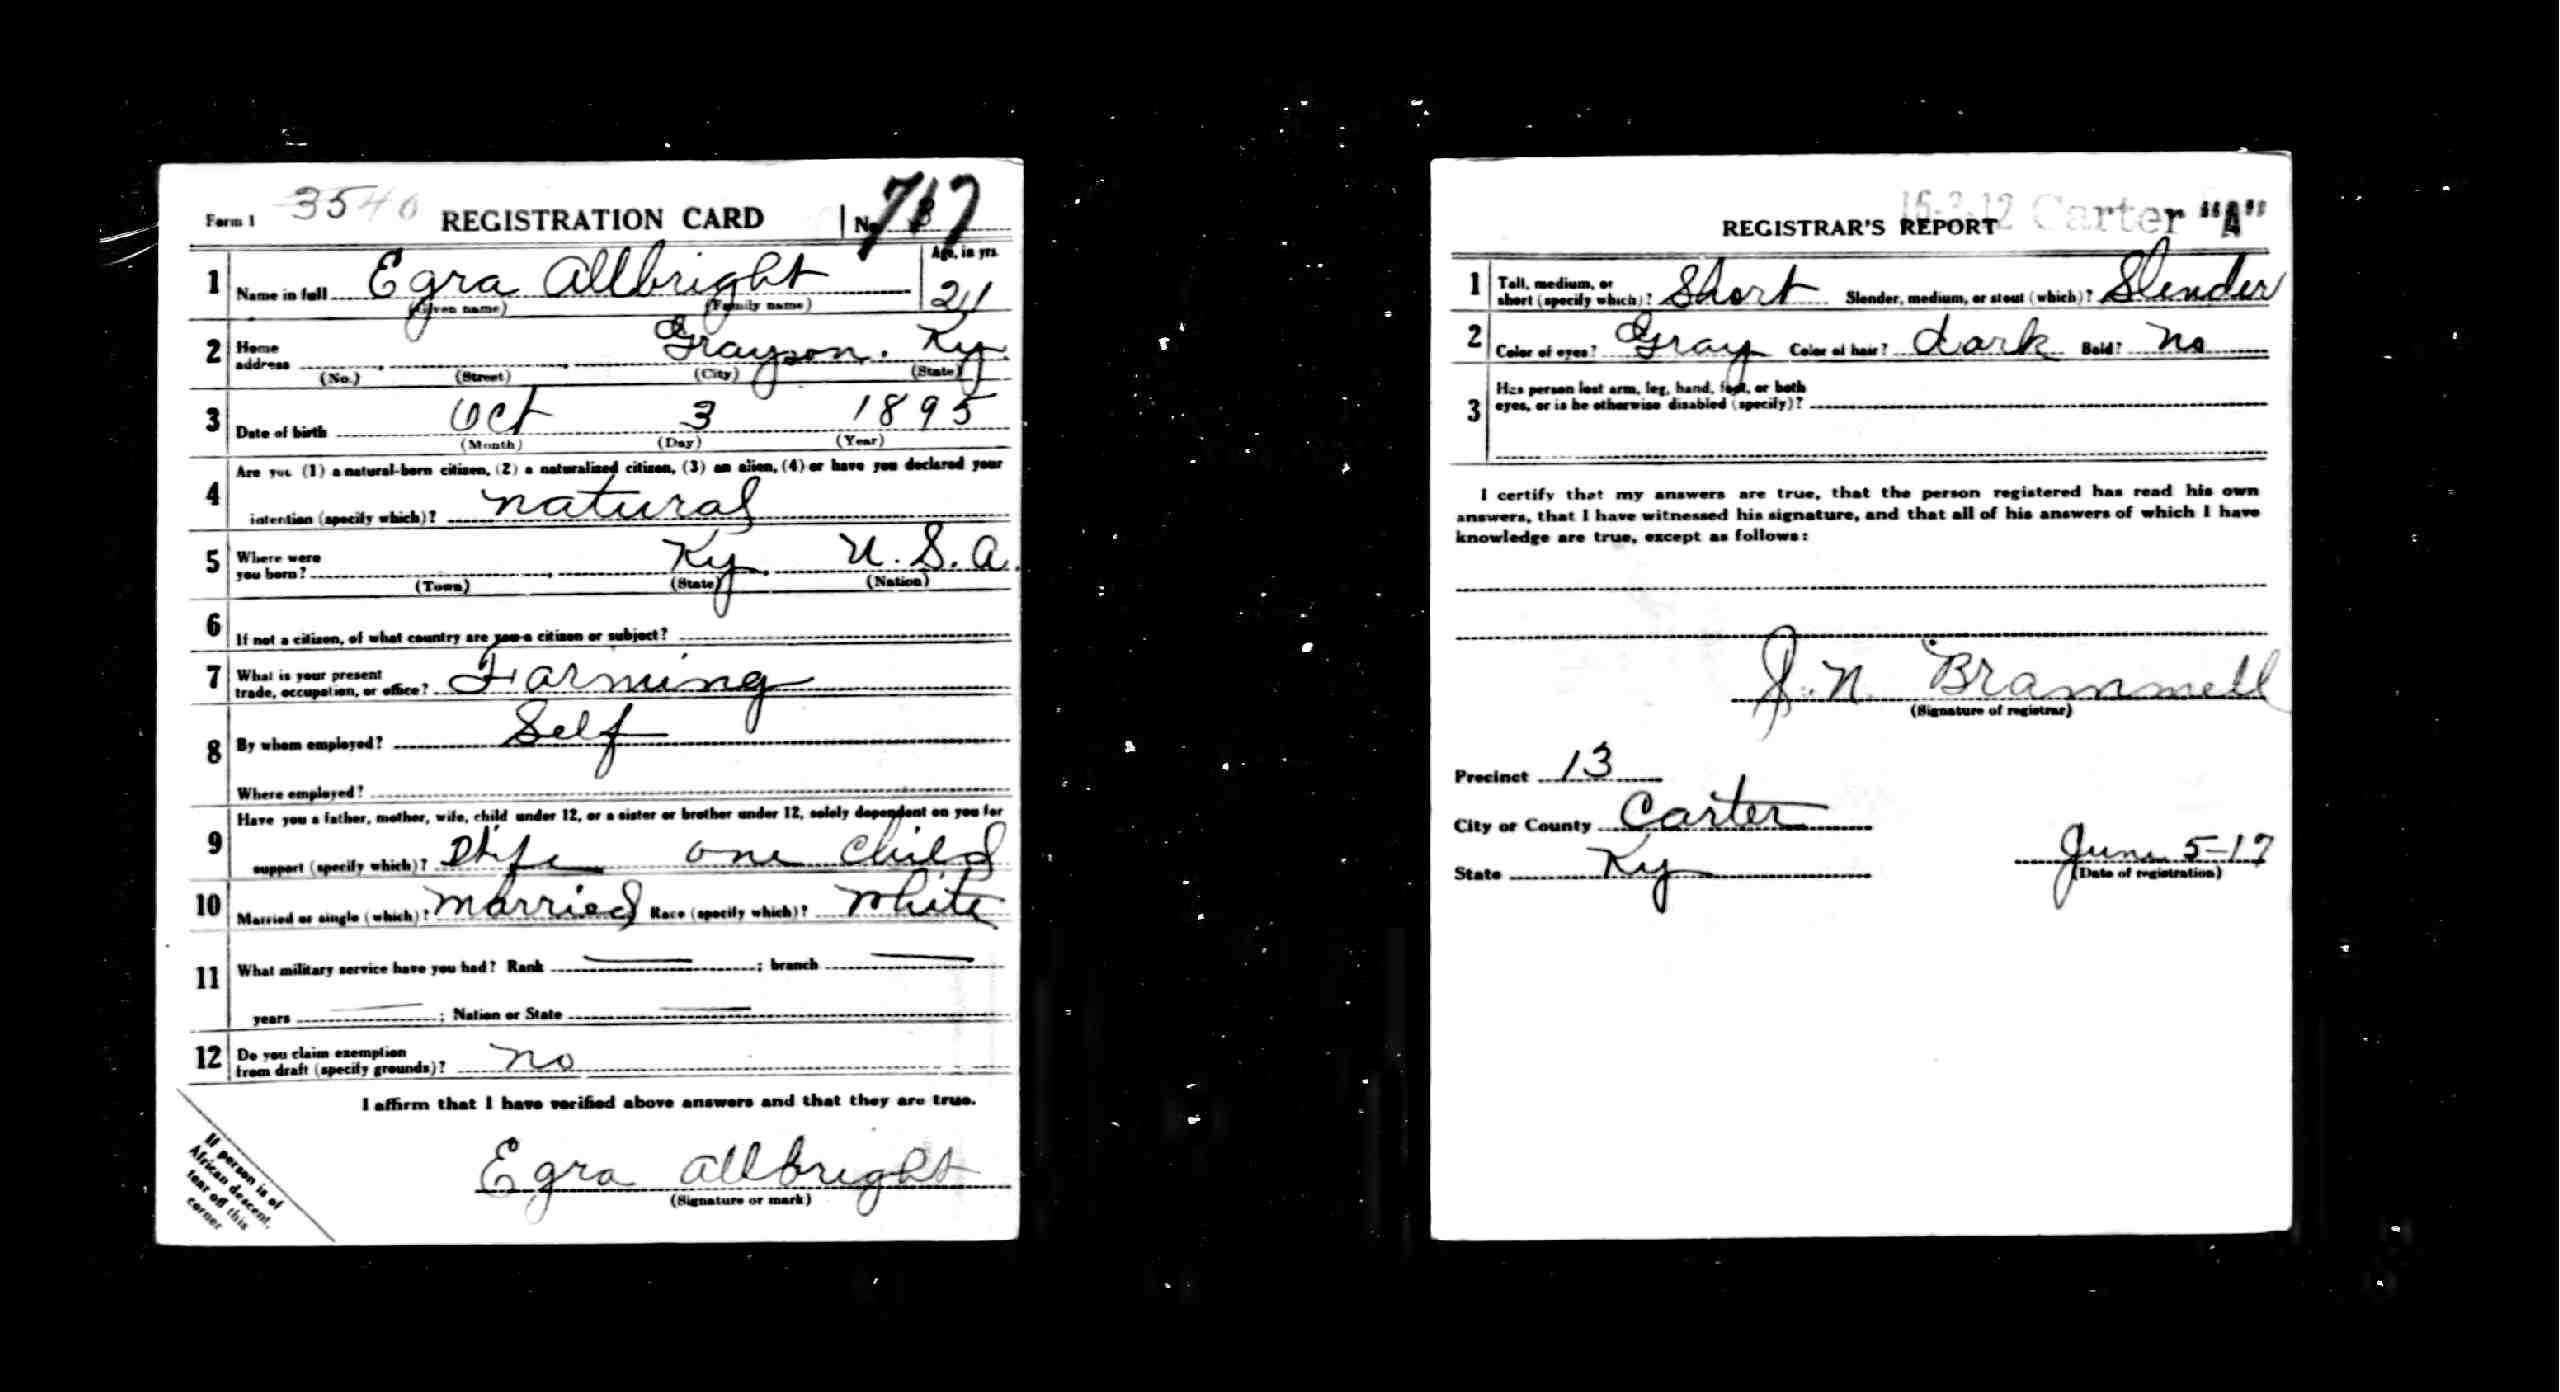 Form 1 3540 REGISTRATION CARD No. 717
1 Name in full Egra Allbright Age, in yrs. 21
(Given name) (Family name)
2 Home address Grayson. Ky.
(No.) (Street) (City) (State)
3 Date of birth Oct 3 1895
(Month) (Day) (Year)
4 Are you (1) a natural-born citizen, (2) a naturalized citizen, (3) an alien, (4) or have you declared your
intention (specify which)? natural
5 Where were you born? Ky. U. S. A.
(Town) (State) (Nation)
6 If not a citizen, of what country are you a citizen or subject?
7 What is your present trade, occupation, or office? Farming
8 By whom employed? Self
Where employed?
9 Have you a father, mother, wife, child under 12, or a sister or brother under 12, solely dependent on you for
support (specify which)? Wife one child
10 Married or single (which)? married Race (specify which)? White
11 What military service have you had? Rank ; branch
years ; Nation or State
12 Do you claim exemption from draft (specify grounds)? no
I affirm that I have verified above answers and that they are true.
Egra Allbright
(Signature or mark)
If person is of
African descent,
tear off this
corner
16-3-12 Carter "A"
REGISTRAR'S REPORT
1 Tall, medium, or short (specify which)? Short Slender, medium, or stout (which)? Slender
2 Color of eyes? Gray Color of hair? dark Bald? no
3 Has person lost arm, leg, hand, foot, or both
eyes, or is he otherwise disabled (specify)?
I certify that my answers are true, that the person registered has read his own
answers, that I have witnessed his signature, and that all of his answers of which I have
knowledge are true, except as follows:
J. N. Brammell
(Signature of registrar)
Precinct 13
City or County Carter
State Ky
June 5-17
(Date of registration)